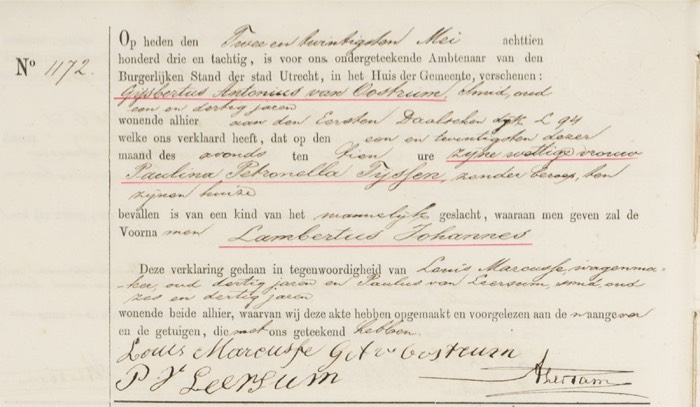 Nº 1172.
Op heden den Twee en twintigsten Mei achttien
honderd drie en tachtig, is voor ons, ondergeteekende Ambtenaar van den
Burgerlijken Stand der stad Utrecht, in het Huis der Gemeente, verschenen:
Gijsbertus Antonius van Oostrum, Smid, oud
een en dertig jaren
wonende alhier aan den Eersten Daalschen dyk L 94
welke ons verklaard heeft, dat op den een en twintigsten dezer
maand des avonds ten tien ure zyne wettige vrouw
Paulina Petronella Tyssen, zonder beroep, ten
zynen huize
bevallen is van een kind van het mannelyk geslacht, waaraan men geven zal de
Voornamen Lambertus Johannes
Deze verklaring gedaan in tegenwoordigheid van Louis Marcusse, wagenma-
ker, oud dertig jaren en Paulus van Leersum, smid, oud
zes en dertig jaren
wonende beide alhier, waarvan wij deze akte hebben opgemaakt en voorgelezen aan de aangever
en de getuigen, die met ons geteekend hebben.
Louis Marcusse G A v Oostrum
P v Leersum